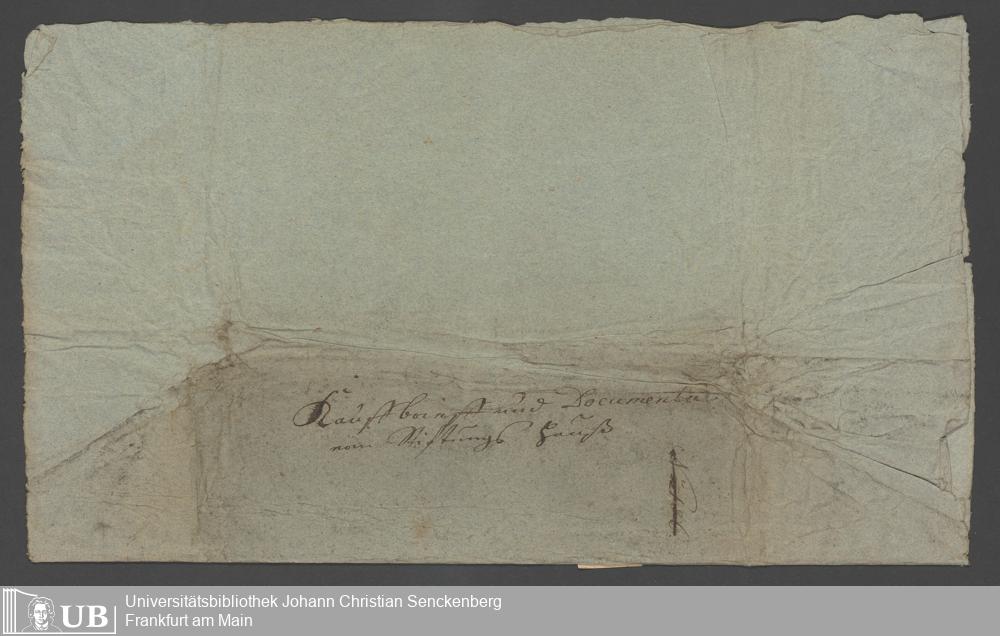 Kauffbrieff und Documenta
vom Stiftungs Hauß
UB
Universitätsbibliothek Johann Christian Senckenberg
Frankfurt am Main